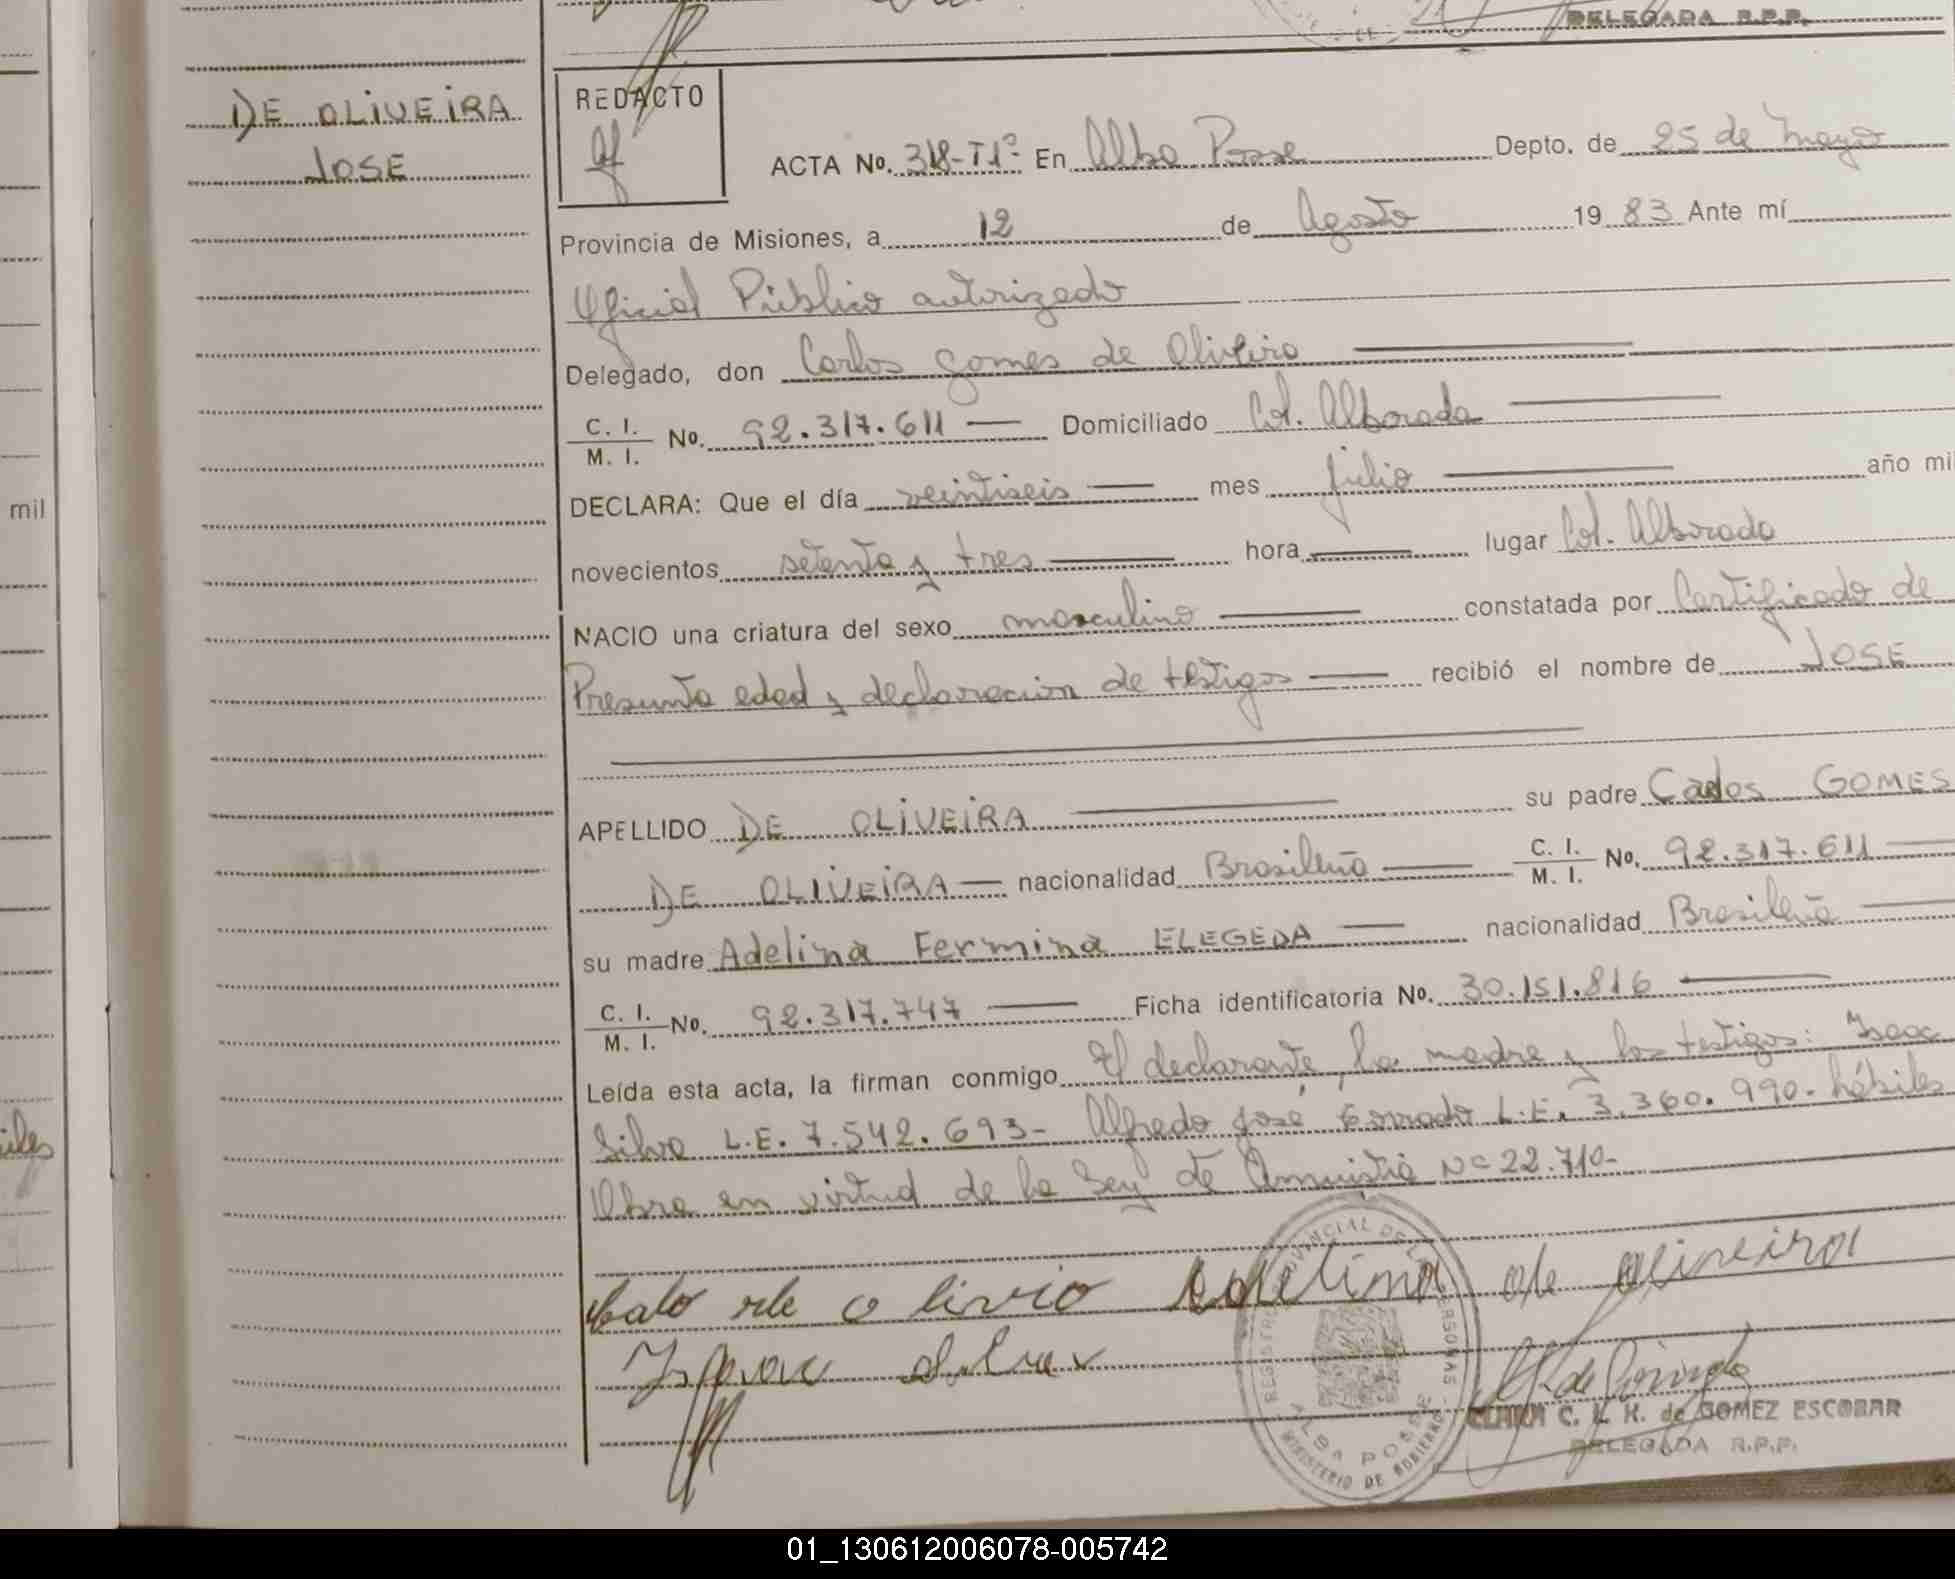 DELEGADA R.P.P.
DE OLIVEIRA
JOSE
REDACTO
ACTA No. 318-T1º- En Alba Posse Depto. de 25 de Mayo
Provincia de Misiones, a 12 de Agosto 19 83 Ante mí
Oficial Público autorizado
Delegado, don Carlos gomes de Oliveira
C. I.
M. I. No. 92.317.611 — Domiciliado Col. Alborada
DECLARA: Que el día veintiseis — mes julio — año mil
novecientos setenta y tres — hora — lugar Col. Alborada
NACIO una criatura del sexo masculino — constatada por Certificado de
Presunta edad y declaración de testigos — recibió el nombre de JOSE
APELLIDO DE OLIVEIRA — su padre Carlos GOMES
DE OLIVEIRA — nacionalidad Brasileña — C. I.
M. I. No. 92.317.611 —
su madre Adelina Fermina ELEGEDA — nacionalidad Brasileña —
C. I.
M. I. No. 92.317.747 — Ficha identificatoria No. 30.151.816 —
Leída esta acta, la firman conmigo El declarante, la madre y los testigos: Isaac
Silva L.E. 7.542.693- Alfredo José L.E. 3.360.990- hábiles
Obra en virtud de la Ley de Amnistía Nº 22.710-
de olivio Adelina de oliveira
REGISTRO PROVINCIAL DE LAS PERSONAS
ALBA POSSE
MINISTERIO DE GOBIERNO
CLARA C. K. H. de GOMEZ ESCOBAR
DELEGADA R.P.P.
mil
01_130612006078-005742